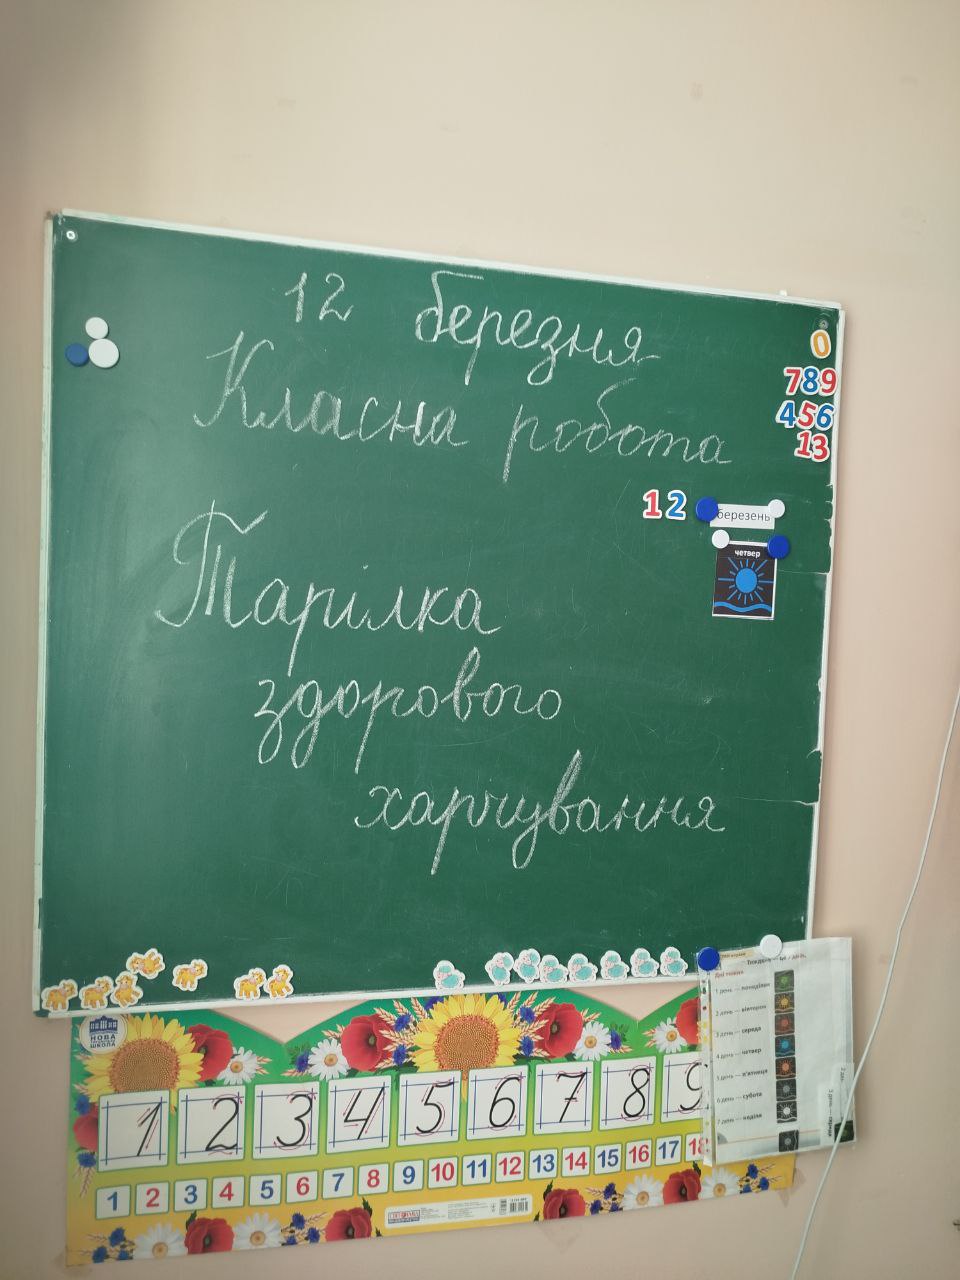 12 березня
Класна робота
Тарілка
здорового
харчування
0
7 8 9
4 5 6
1 3
1 2
березень
четвер
НОВА
ШКОЛА
1 2 3 4 5 6 7 8 9
1 2 3 4 5 6 7 8 9 10 11 12 13 14 15 16 17 18
Дні тижня
1 день — понеділок
2 день — вівторок
3 день — середа
4 день — четвер
5 день — п'ятниця
6 день — субота
7 день — неділя